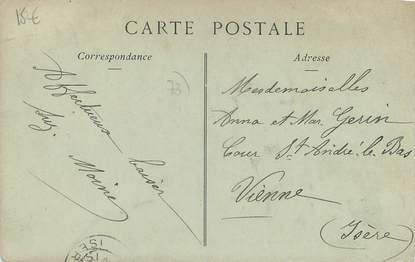 15€
CARTE POSTALE
Correspondance
Adresse
73
Affectueux baiser
Mesdemoiselles
Anna et Mar Gerin
Cour St André-le-Bas
Vienne
(Isère)